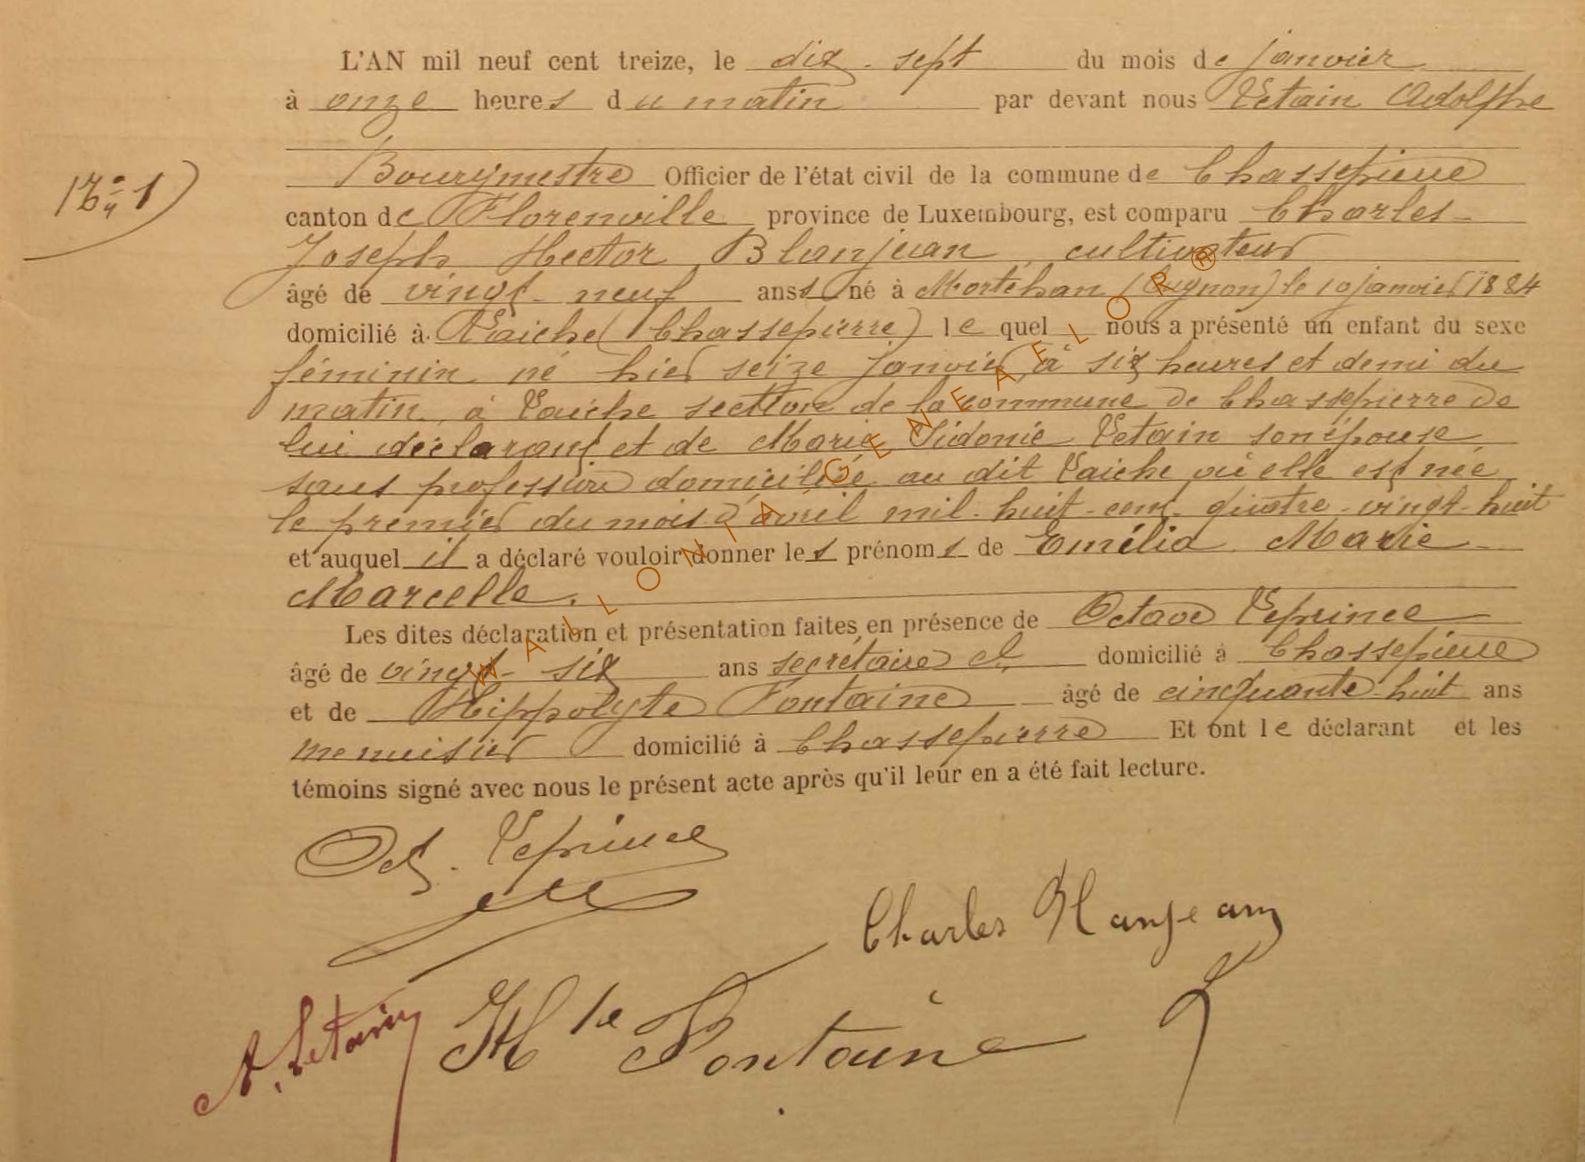 L'AN mil neuf cent treize, le dix-sept du mois de janvier
à onze heures du matin par devant nous Letain Adolphe
Bourgmestre Officier de l'état civil de la commune de Chassepierre
N° 1
canton de Florenville province de Luxembourg, est comparu Charles
Joseph Hector Blanjean, cultivateur
âgé de vingt-neuf anss né à Mortehan (Cugnon) le 10 janvier 1884
domicilié à Laiche (Chassepierre) lequel nous a présenté un enfant du sexe
féminin né hier seize janvier, à six heures et demi du
matin à Laiche section de la commune de Chassepierre de
lui déclarant et de Marie Sidonie Letain son épouse
sans profession domiciliée au dit Laiche où elle est née
le premier du mois d'avril mil-huit-cent-quatre-vingt-huit
et auquel il a déclaré vouloir donner les prénoms de Emélia Marie
Marcelle.
Les dites déclaration et présentation faites en présence de Octave Leprince
âgé de vingt-six ans secrétaire cl domicilié à Chassepierre
et de Hippolyte Fontaine âgé de cinquante-huit ans
menuisier domicilié à Chassepierre Et ont le déclarant et les
témoins signé avec nous le présent acte après qu'il leur en a été fait lecture.
Oct. Leprince
Charles Blanjean
A. Letain Hte Fontaine
WALLONIA-GENEAFLOR®